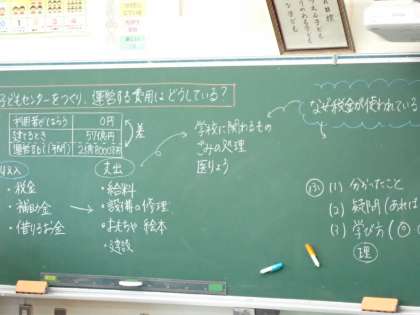 子どもセンターをつくり、運営する費用はどうしている?
利用者がはらう 0円
建てるとき 57億円
差
収入
・税金
・補助金
・借りるお金
支出
・給料
・設備の修理
・おもちゃ 絵本
・建設
学校に関わるもの
ごみの処理
医りょう
なぜ税金が使われている
ふ (1) 分かったこと
(2) 疑問(あれば
(3) 学び方(
理